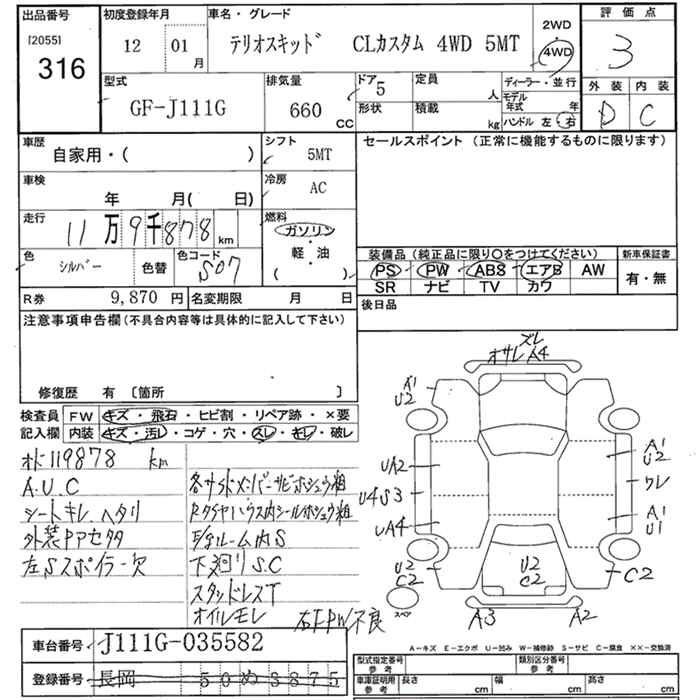 出品番号
[2055]
316
初度登録年月
12 01 月
車名・グレード
テリオスキッド CLカスタム 4WD 5MT
2WD
・
4WD
評価点
3
型式
GF-J111G
排気量
660 CC
ドア 5
形状
定員 人
積載 kg
ディーラー・並行
モデル
年式 年
ハンドル 左・右
外装 内装
D C
車歴
自家用・( )
シフト
5MT
セールスポイント (正常に機能するものに限ります)
車検
年 月( 日)
冷房
AC
走行
11万9千878 km
燃料
ガソリン
・
軽・油
( )
色
シルバー
色替
色コード
S07
装備品 (純正品に限り○をつけてください)
PS PW ABS エアB AW
SR ナビ TV カワ
新車保証書
有・無
R券 9,870 円 名変期限 月 日
後日品
注意事項申告欄 (不具合内容等は具体的に記入して下さい)
修復歴 有 [箇所 ]
検査員
記入欄
FW キズ・飛石・ヒビ割・リペア跡・×要
内装 キズ・汚レ・コゲ・穴・スレ・キレ・破レ
オド119878 km
A.U.C
シートキレ ヘタリ
左Sスポイラー欠
下廻りS.C
スタッドレスT
オイルモレ
右FPW不良
ズレ
オサレ A4
A1
U2
UA2
U4S3
UA4
U2
C2
A1
U2
ワレ
A1
U1
C2
U2
C2
A3
A2
スペア
車台番号 J111G-035582
登録番号 長岡 50 め 3875
A-キズ E-エクボ U-凹み W-補修跡 S-サビ C-腐食 ××-交換済
型式指定番号
参考
類別区分番号
参考
車庫証明用
参考
長さ cm 幅 cm 高さ cm